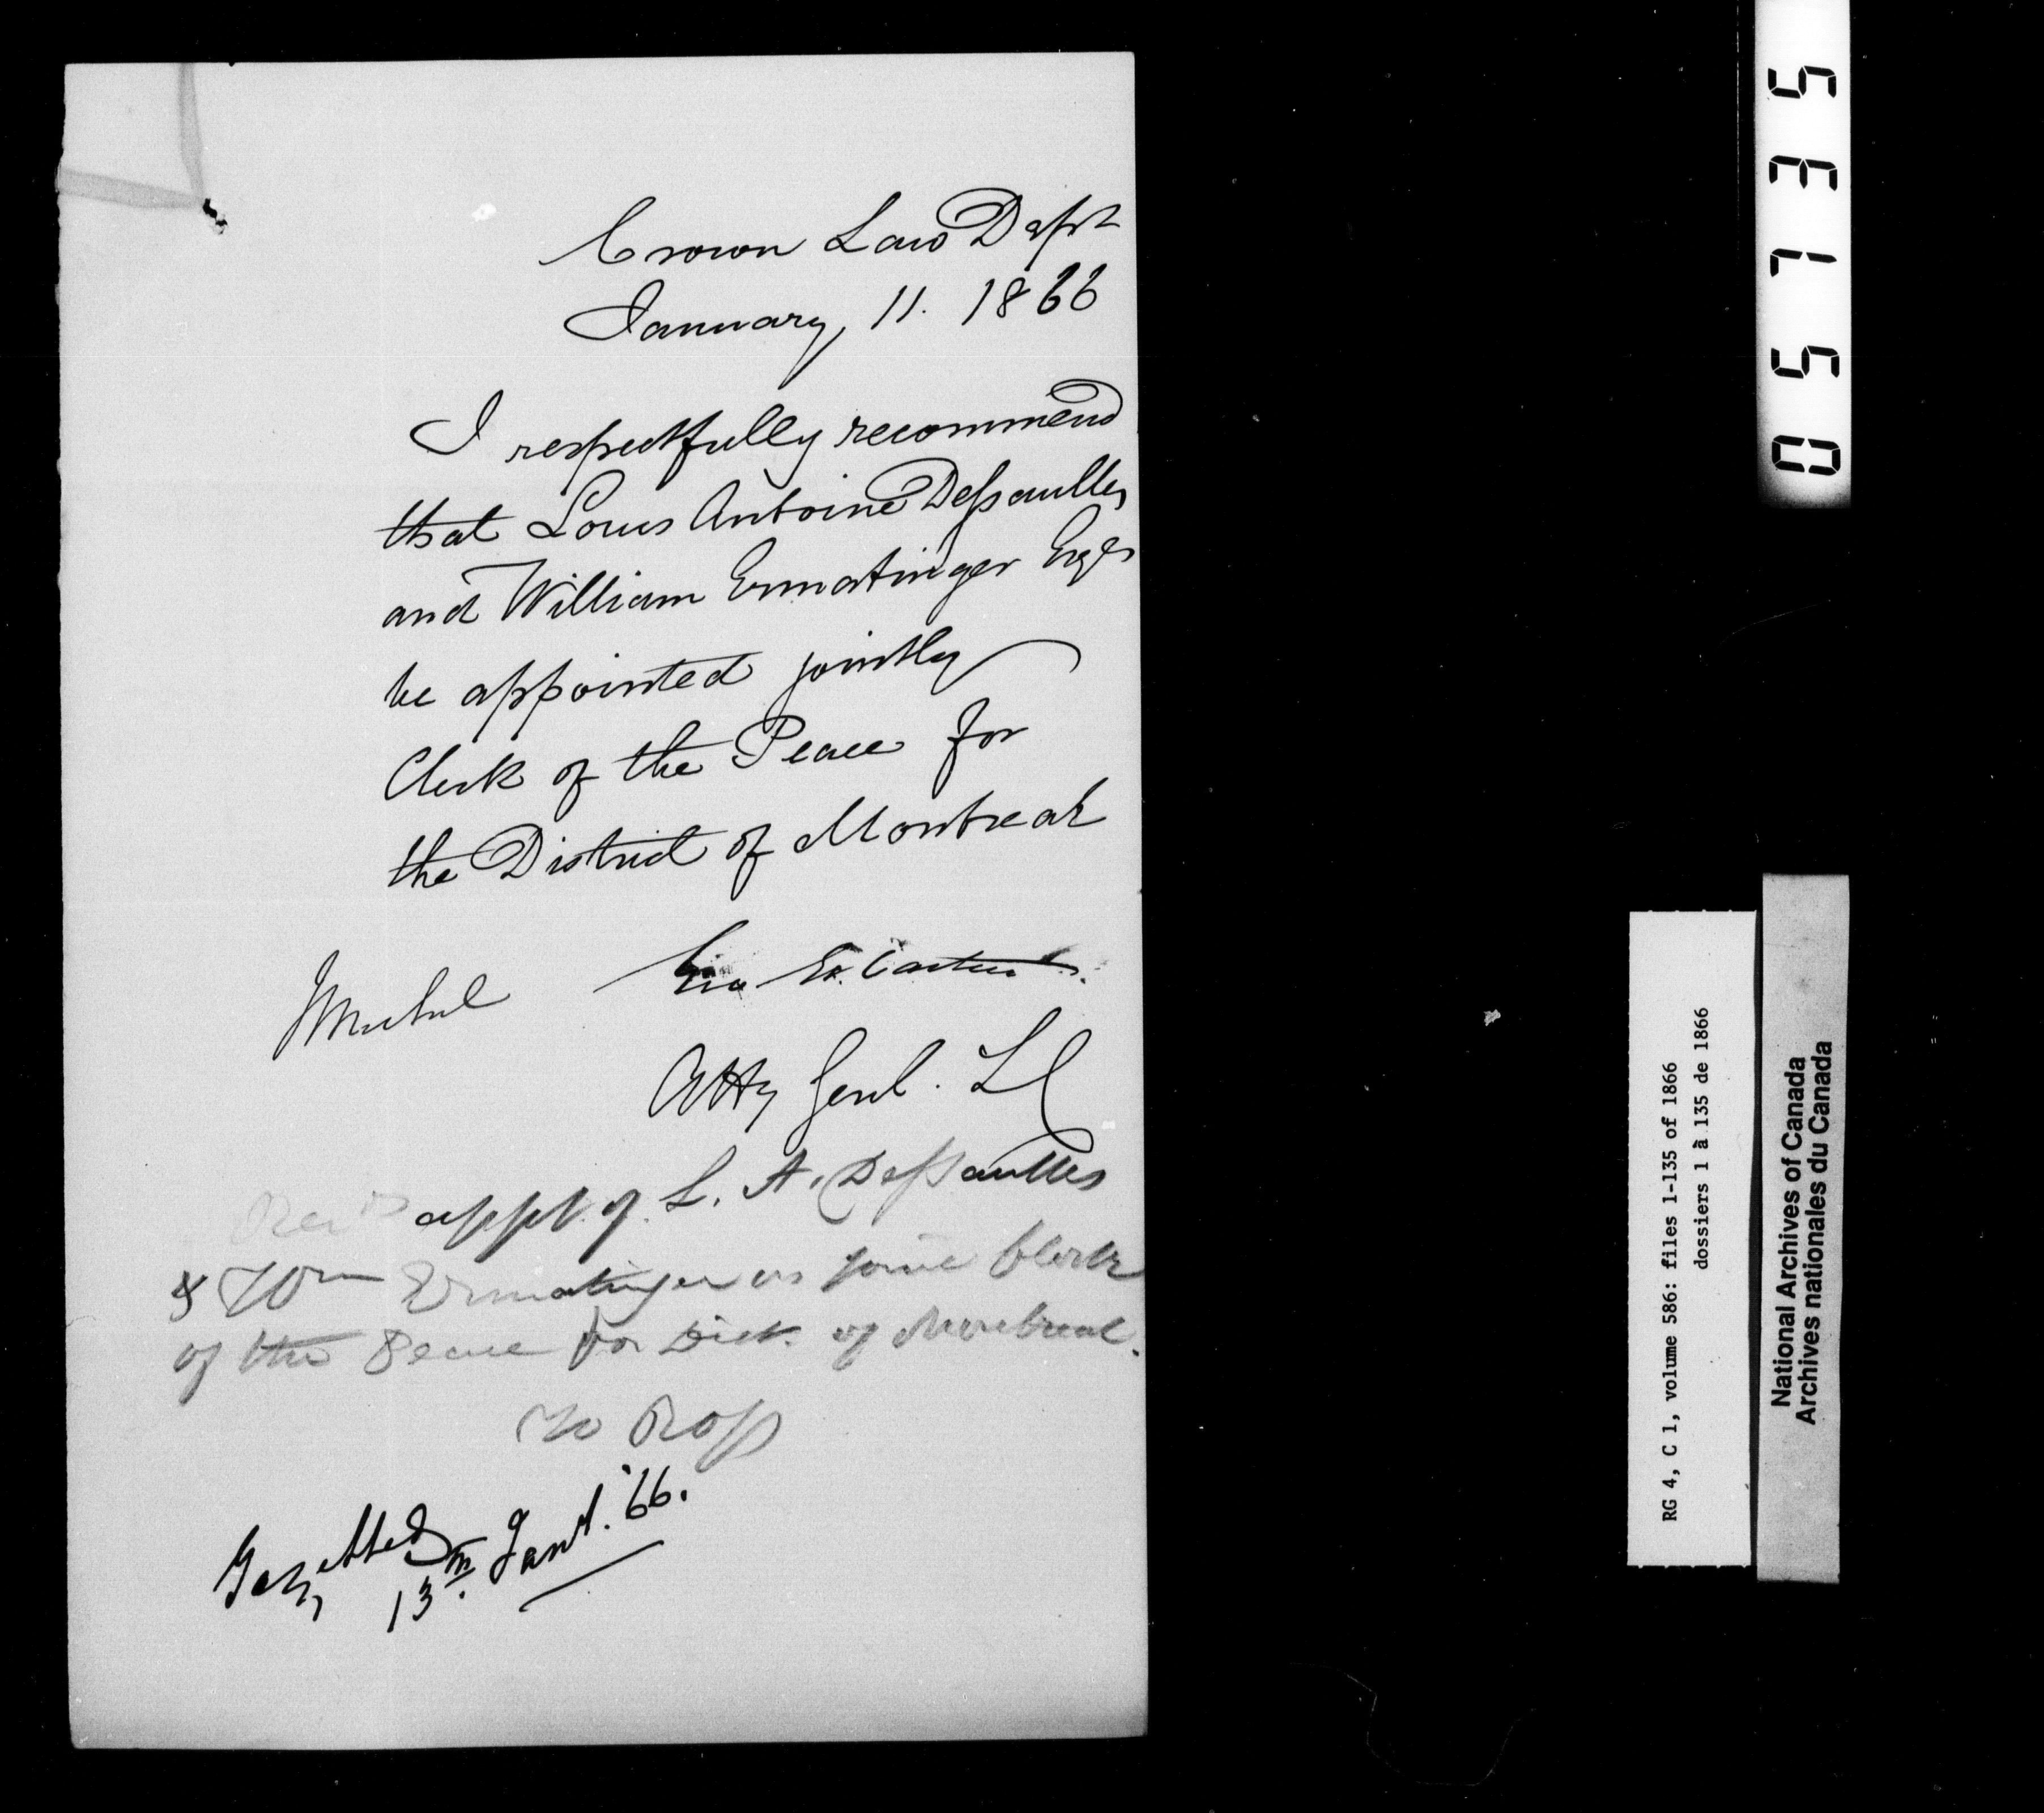 Crown Law Dept
January, 11. 1866
I respectfully recommend
that Louis Antoine Dessaulles
and William Ermatinger Esqrs
be appointed jointly
Clerk of the Peace for
the District of Montreal
Geo Et. Cartier
Michel
Atty Genl. LC
appt. of L. A. Dessaulles
& Wm Ermatinger as joint Clerk
of the Peace for Dist. of Montreal.
to Ross
Gazetted
13th Jany. '66.
05135
RG 4, C 1, volume 586: files 1-135 of 1866
dossiers 1 à 135 de 1866
National Archives of Canada
Archives nationales du Canada